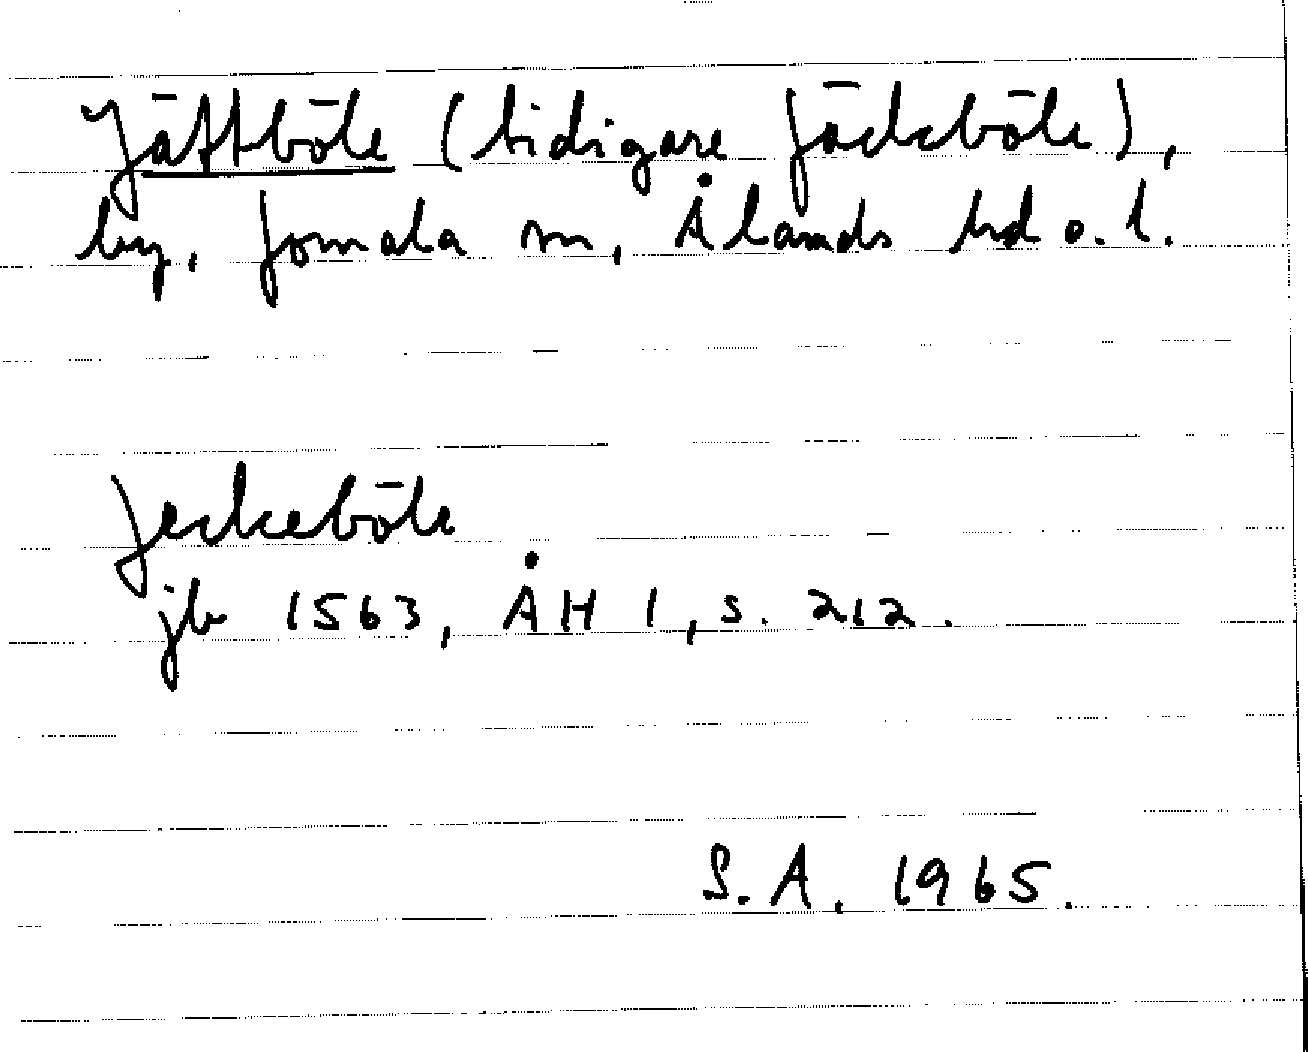 Jättböle (tidigare Jäckeböle),
by, Jomala sn, Ålands hd o. l.
Jeckeböle
jb 1563, ÅH 1, s. 212.
S.A. 1965.